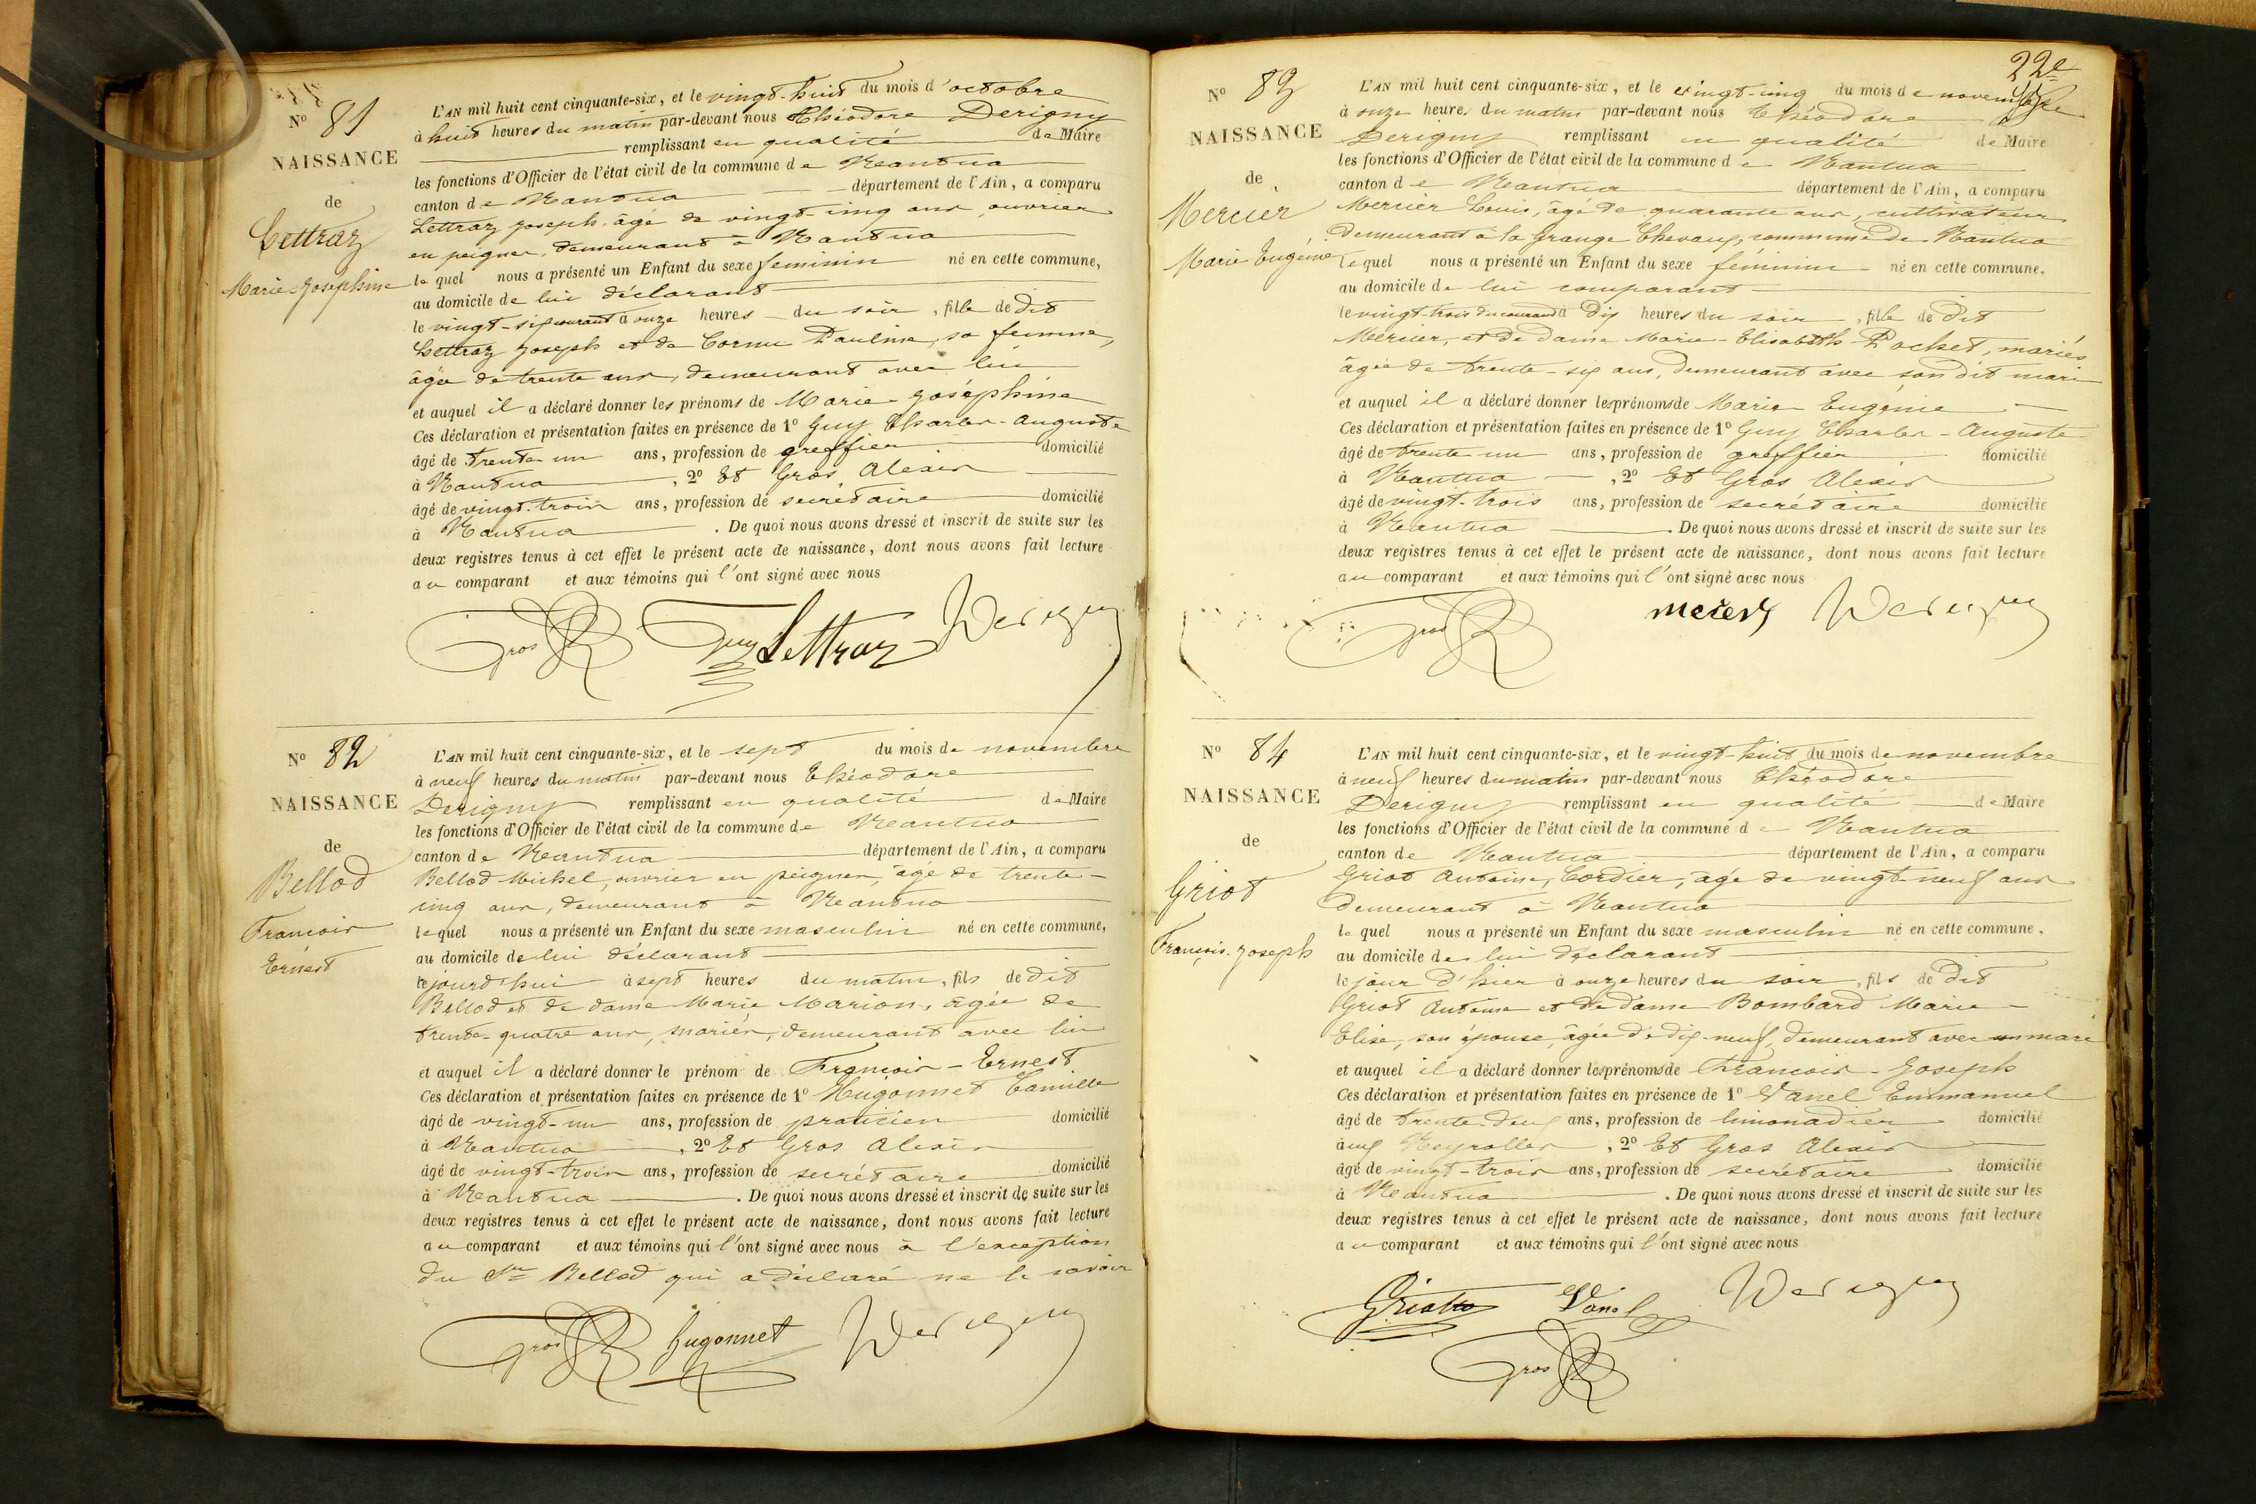 N° 81
NAISSANCE
de
Lettraz
Marie-Joséphine
L'AN mil huit cent cinquante-six, et le vingt-huit du mois d'octobre
à huit heures du matin par-devant nous Théodore Derigny
remplissant en qualité de Maire
les fonctions d'Officier de l'état civil de la commune de Nantua
canton de Nantua département de l'Ain, a comparu
Lettraz Joseph, âgé de vingt-cinq ans, ouvrier
en peignes, demeurant à Nantua
lequel nous a présenté un Enfant du sexe féminin né en cette commune,
au domicile de lui déclarant
le vingt-six courant à onze heures du soir, fille de dit
Lettraz Joseph et de Cornu Pauline, sa femme,
âgée de trente ans, demeurant avec lui
et auquel il a déclaré donner les prénoms de Marie-Joséphine
Ces déclaration et présentation faites en présence de 1° Guy Charles-Auguste
âgé de trente-un ans, profession de greffier domicilié
à Nantua, 2° Et Gros Alexis
âgé de vingt-trois ans, profession de secrétaire domicilié
à Nantua. De quoi nous avons dressé et inscrit de suite sur les
deux registres tenus à cet effet le présent acte de naissance, dont nous avons fait lecture
au comparant et aux témoins qui l'ont signé avec nous
Gros Guy Lettraz Derigny
N° 82
NAISSANCE
de
Bellod
François
Ernest
L'AN mil huit cent cinquante-six, et le sept du mois de novembre
à neuf heures du matin par-devant nous Théodore
Derigny remplissant en qualité de Maire
les fonctions d'Officier de l'état civil de la commune de Nantua
canton de Nantua département de l'Ain, a comparu
Bellod Michel, ouvrier en peignes, âgé de trente-
cinq ans, demeurant à Nantua
lequel nous a présenté un Enfant du sexe masculin né en cette commune,
au domicile de lui déclarant
lejourd'hui à sept heures du matin, fils de dit
Bellod et de dame Marie Marion, âgée de
trente-quatre ans, mariés, demeurant avec lui
et auquel il a déclaré donner le prénom de François-Ernest
Ces déclaration et présentation faites en présence de 1° Hugonnet Camille
âgé de vingt-un ans, profession de praticien domicilié
à Nantua, 2° Et Gros Alexis
âgé de vingt-trois ans, profession de secrétaire domicilié
à Nantua. De quoi nous avons dressé et inscrit de suite sur les
deux registres tenus à cet effet le présent acte de naissance, dont nous avons fait lecture
au comparant et aux témoins qui l'ont signé avec nous à l'exception
du Sr Bellod qui a déclaré ne le savoir
Gros hugonnet Derigny
22e
N° 83
NAISSANCE
de
Mercier
Marie Eugénie
L'AN mil huit cent cinquante-six, et le vingt-cinq du mois de novembre
à onze heures du matin par-devant nous Théodore
Derigny remplissant en qualité de Maire
les fonctions d'Officier de l'état civil de la commune de Nantua
canton de Nantua département de l'Ain, a comparu
Mercier Louis, âgé de quarante ans, cultivateur
demeurant à la Grange Chevaux, commune de Nantua
lequel nous a présenté un Enfant du sexe féminin né en cette commune,
au domicile de lui comparant
le vingt-trois du courant à dix heures du soir, fille de dit
Mercier, et de dame Marie-Elisabeth Pochet, mariés
âgée de trente-six ans, demeurant avec son dit mari
et auquel il a déclaré donner les prénoms de Marie Eugénie
Ces déclaration et présentation faites en présence de 1° Guy Charles-Auguste
âgé de trente-un ans, profession de greffier domicilié
à Nantua, 2° Et Gros Alexis
âgé de vingt-trois ans, profession de secrétaire domicilié
à Nantua. De quoi nous avons dressé et inscrit de suite sur les
deux registres tenus à cet effet le présent acte de naissance, dont nous avons fait lecture
au comparant et aux témoins qui l'ont signé avec nous
Gros Derigny
N° 84
NAISSANCE
de
Griot
François-Joseph
L'AN mil huit cent cinquante-six, et le vingt-huit du mois de novembre
à neuf heures du matin par-devant nous Théodore
Derigny remplissant en qualité de Maire
les fonctions d'Officier de l'état civil de la commune de Nantua
canton de Nantua département de l'Ain, a comparu
Griot Antoine, Cordier, âgé de vingt-neuf ans
demeurant à Nantua
lequel nous a présenté un Enfant du sexe masculin né en cette commune,
au domicile de lui déclarant
le jour d'hier à onze heures du soir, fils de dit
Griot Antoine et de dame Bombard Marie-
Elise, son épouse, âgée de dix-neuf, demeurant avec son mari
et auquel il a déclaré donner les prénoms de François-Joseph
Ces déclaration et présentation faites en présence de 1° Vanel Emmanuel
âgé de trente-deux ans, profession de limonadier domicilié
aux Neyrolles, 2° Et Gros Alexis
âgé de vingt-trois ans, profession de secrétaire domicilié
à Nantua. De quoi nous avons dressé et inscrit de suite sur les
deux registres tenus à cet effet le présent acte de naissance, dont nous avons fait lecture
au comparant et aux témoins qui l'ont signé avec nous
Vanel Derigny
Gros